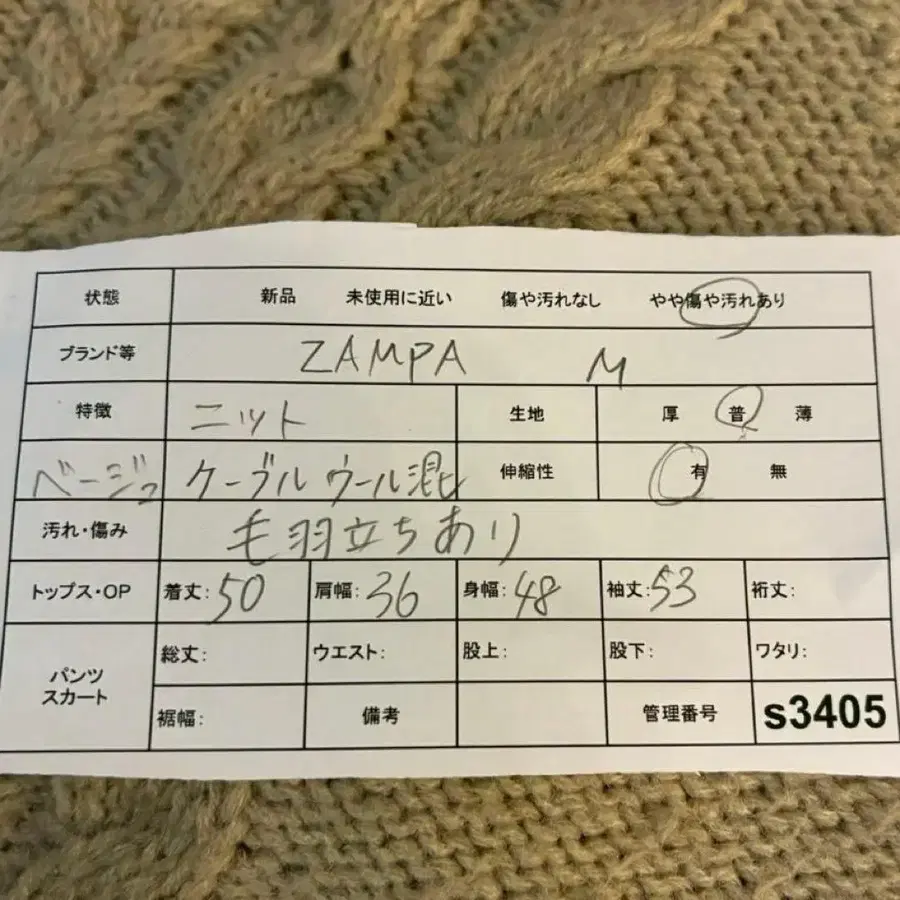 状態 新品 未使用に近い 傷や汚れなし やや傷や汚れあり
ブランド等 ZAMPA M
特徴 ニット 生地 厚 普 薄
ベージュ ケーブル ウール混 伸縮性 有 無
汚れ・傷み 毛羽立ちあり
トップス・OP 着丈: 50 肩幅: 36 身幅: 48 袖丈: 53 裄丈:
パンツ スカート 総丈: ウエスト: 股上: 股下: ワタリ:
裾幅: 備考 管理番号 s3405